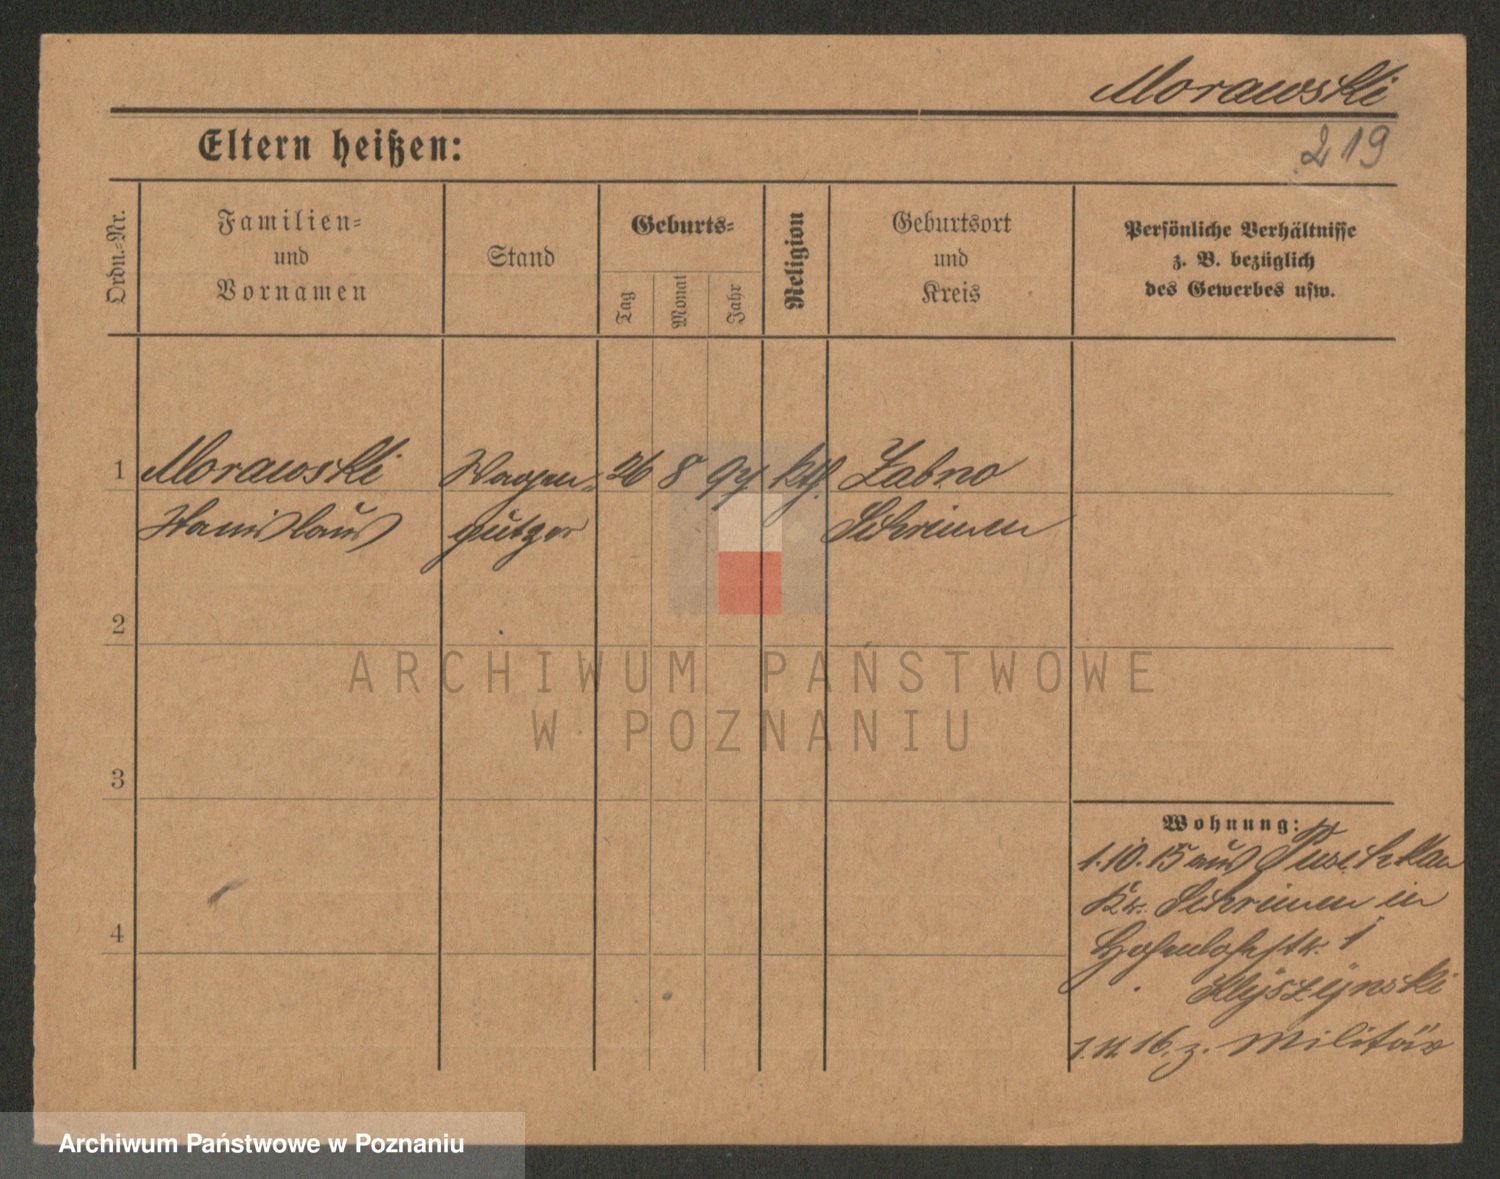 Morawski
219
Eltern heißen:
Ordn.-Nr.
Familien-
und
Vornamen
Stand
Geburts-
Tag
Monat
Jahr
Religion
Geburtsort
und
Kreis
Persönliche Verhältnisse
z. B. bezüglich
des Gewerbes usw.
1 Morawski Wagen- 26 8 97 kth. Zabno
Stanislaus putzer Schrimm
2
3
4
Wohnung:
1.10.15 aus
Kr. Schrimm in
Hohenlohestr. 1
1.11.16. z. Militär
ARCHIWUM PAŃSTWOWE
W POZNANIU
Archiwum Państwowe w Poznaniu